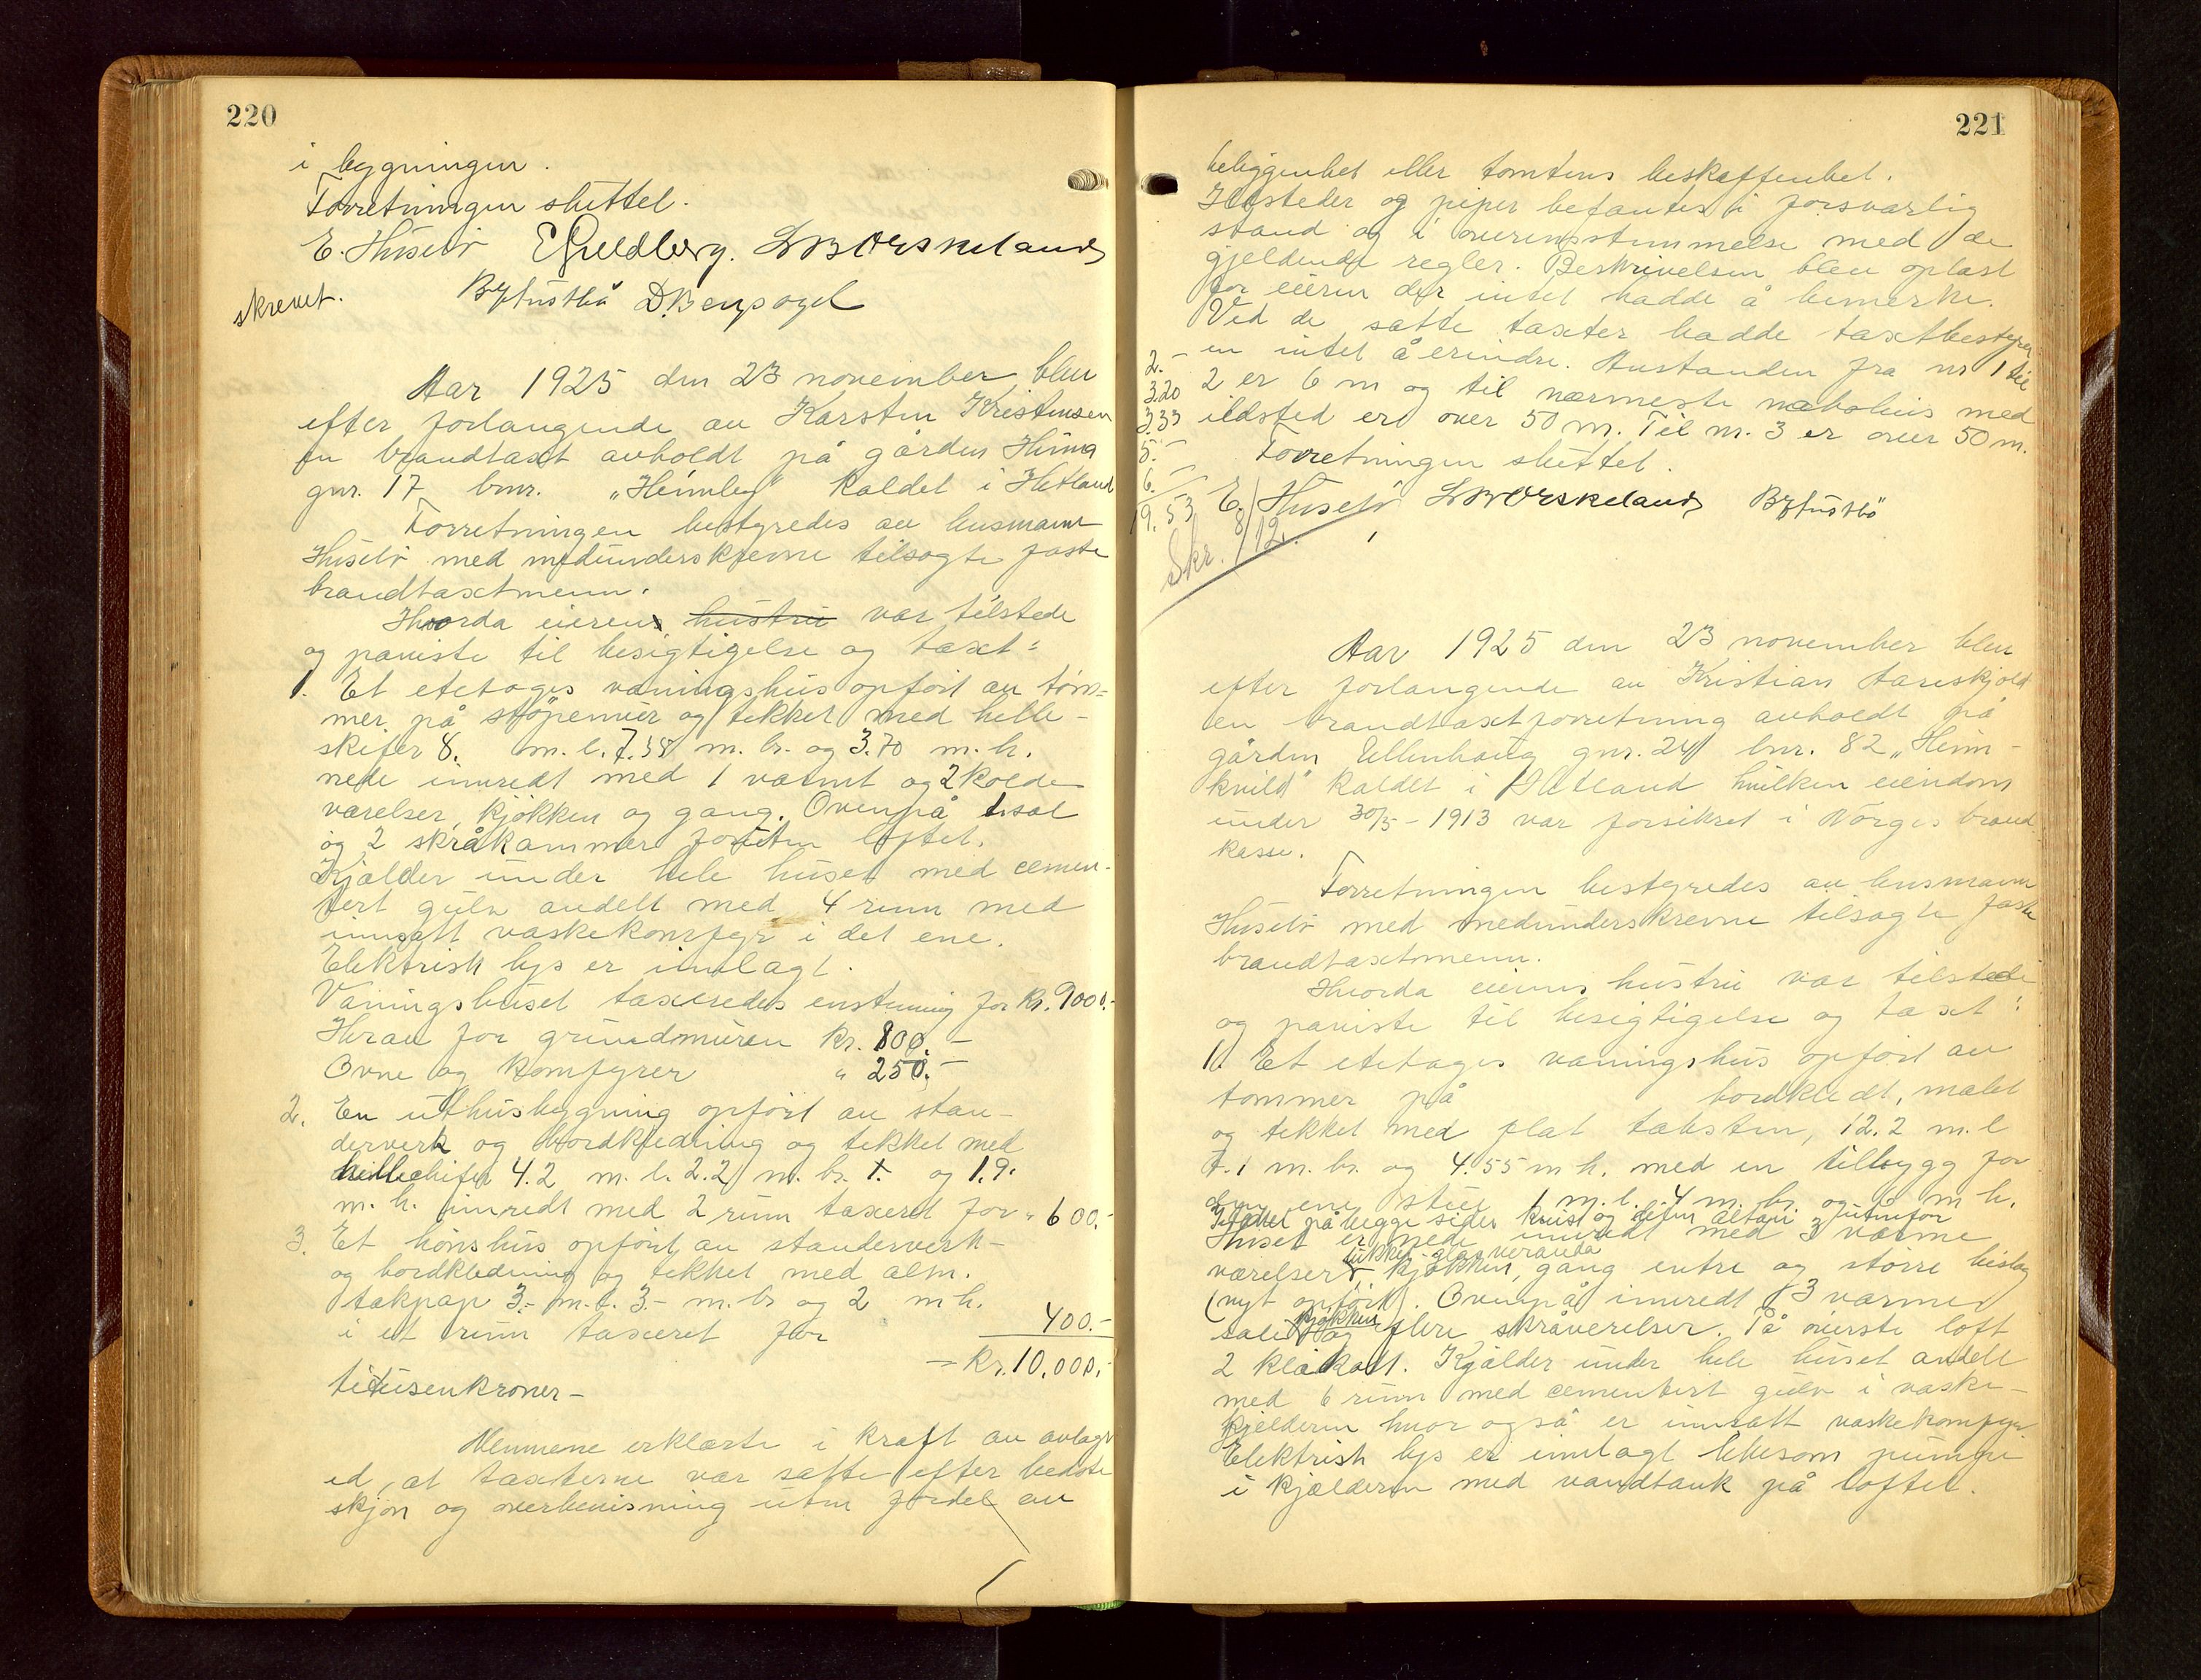 220
i bygningen.
Forretningen sluttet.
E. Huselö
skrevet.
Aar 1925 den 23 november blev
efter forlangende av Karsten Kristensen
en brandtaxt avholdt på gården Hinna
gnr. 17 bnr. „Heimley" kaldet i Hetland
Forretningen bestyredes av lensmann
Huselö med medunderskrevne tilsagte faste
brandtaxtmenn.
Hvorda eieren var tilstede
og paviste til besigtigelse og taxt:
1. Et etetages våningshus opført av töm-
mer på støpemur og tekket med helle-
skifer 8. m.l. 7.58 m. br. og 3.70 m.h.
nede innredt med 1 varmt og 2 kolde
værelser, kjøkken og gang. Ovenpå 1 sal
og 2 skråkammer foruten loftet.
Kjælder under hele huset med cemen-
tert gulv avdelt med 4 rum med
innsatt vaskekomfyr i det ene.
Elektrisk lys er innlagt.
Våningshuset taxeredes enstemmig for kr. 9000.-
Herav for grundmuren kr. 800.-
Ovne og komfyrer " 250.-
2. En uthusbygning opført av stan-
derverk og bordklædning og tekket med
4.2 m. l. 2.2 m. br. og 1.9.
m. h. innredt med 2 rum taxeret for " 600.-
3. Et hönshus opført av standerverk-
og bordklædning og tekket med alm.
takpap 3.- m.l. 3.- m.br og 2 m h.
i et rum taxeret for 400.-
= Kr. 10.000.-
titusenkroner-
Mennene erklærte i kraft av avlagt
ed, at taxterne var satte efter bedste
skjøn og overbevisning uten fordel av
221
beliggenhet eller tomtens beskaffenhet.
Ildsteder og piper befantes i forsvarlig
stand og i overensstemmelse med de
gjeldende regler. Beskrivelsen blev oplæst
for eieren der intet hadde å bemerke.
Ved de satte taxter hadde taxtbestyrer
2.- en intet å erindre. Avstanden fra nr 1 til
3.20 2 er 6 m og til nærmeste nabohus med
3.33 ildsted er over 50 m. Til nr. 3 er over 50 m.
5.- Forretningen sluttet.
6.-
19.53 E. Huselö
Skr. 8/12.
Aar 1925 den 23 november blev
efter forlangende av Kristian Aareskjold
en brandtaxtforretning avholdt på
gården Ullenhaug gnr. 24 bnr. 82 „Heim-
kvild" kaldet i Hetland hvilken eiendom
under 30/5 - 1913 var forsikret i Norges brand
kasse.
Forretningen bestyredes av lensmann
Huselö med medunderskrevne tilsagte faste
brandtaxtmenn.
Hvorda eierens hustru var tilstede
og paviste til besigtigelse og taxt:
1. Et etetages våningshus opført av
tømmer på bordklædt, malet
og tekket med flat taksten, 12.2 m.l
7.1 m. br. og 4.55 m h. med en tilbygg for
den ene stue 1 m. l. 4 m. br. og 3 m h.
på begge sider kvist og altan utenfor
Huset er nede innredt med 3 varme
lukket glasveranda
værelser, kjøkken, gang entre og større bislag
(nyt opført). Ovenpå innredt 3 varme
kjøkken
saler og flere skråverelser. På øverste loft
2 klækott. Kjælder under hele huset avdelt
med 6 rum med cementert gulv i vaske-
kjelderen hvor også er innsatt vaskekomfyr
Elektrisk lys er innlagt likesom pumpe
i kjælderen med vandtank på loftet.